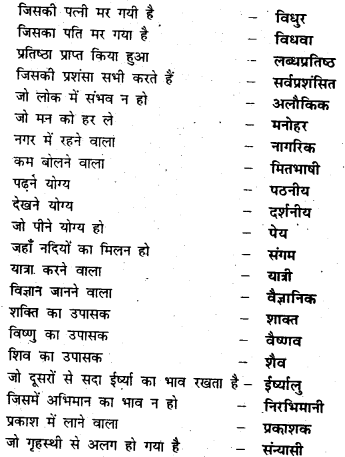 जिसकी पत्नी मर गयी है – विधुर
जिसका पति मर गया है – विधवा
प्रतिष्ठा प्राप्त किया हुआ – लब्धप्रतिष्ठ
जिसकी प्रशंसा सभी करते हैं – सर्वप्रशंसित
जो लोक में संभव न हो – अलौकिक
जो मन को हर ले – मनोहर
नगर में रहने वाला – नागरिक
कम बोलने वाला – मितभाषी
पढ़ने योग्य – पठनीय
देखने योग्य – दर्शनीय
जो पीने योग्य हो – पेय
जहाँ नदियों का मिलन हो – संगम
यात्रा करने वाला – यात्री
विज्ञान जानने वाला – वैज्ञानिक
शक्ति का उपासक – शाक्त
विष्णु का उपासक – वैष्णव
शिव का उपासक – शैव
जो दूसरों से सदा ईर्ष्या का भाव रखता है – ईर्ष्यालु
जिसमें अभिमान का भाव न हो – निरभिमानी
प्रकाश में लाने वाला – प्रकाशक
जो गृहस्थी से अलग हो गया है – संन्यासी